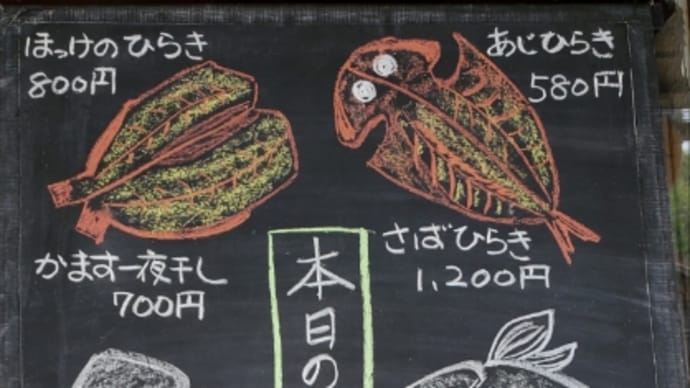 ほっけのひらき
800円
あじひらき
580円
かます一夜干し
700円
さばひらき
1,200円
本日の